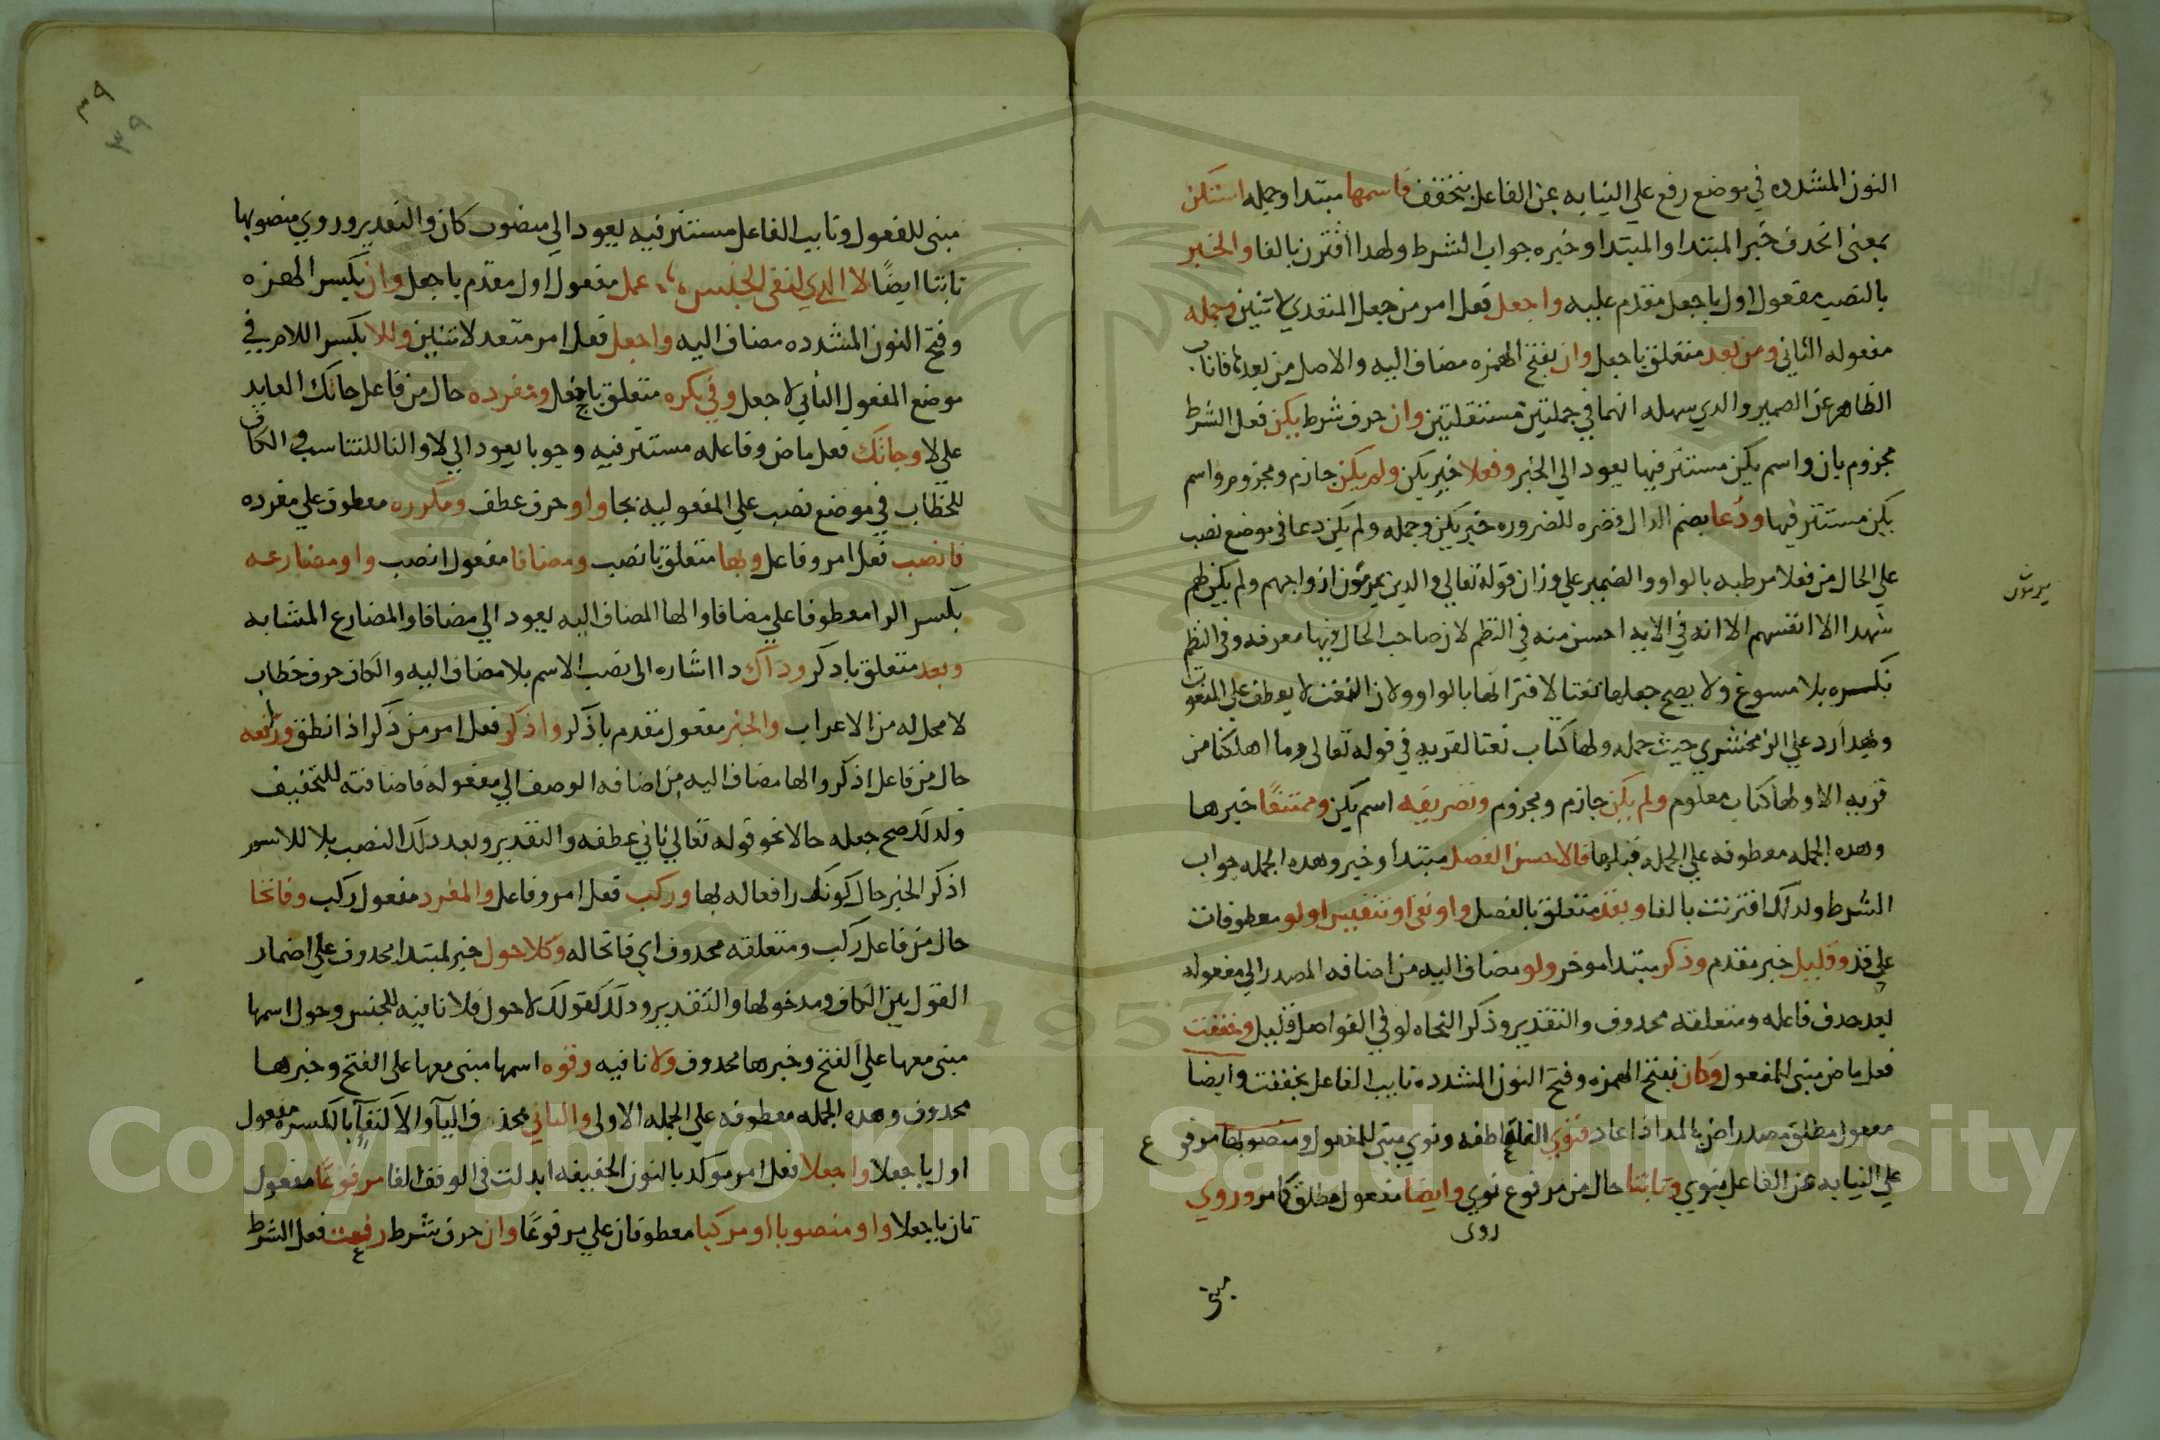 النون المشدده في موضع رفع علي النيابه عن الفاعل بتخفف فاسمها مبتدا وجمله استكن
بمعني انحذف خبر المبتدا والمبتدا وخبره جواب الشرط ولهدا اقترن بالفا والخبر
بالنصب مفعول اول باجعل مقدم عليه واجعل فعل امر من جعل المتعدي لاثنين وجمله
مفعوله الثاني ومن بعد متعلق باجعل وان بفتح الهمزه مضاف اليه والاصل من بعدها فاناب
الظاهر عن الضمير والدي سهله انهما في جملتين مستقلتين وان حرف شرط يكن فعل الشرط
مجزوم بان واسم يكن مستتر فيها يعود الي الخبر وفعلا خبر يكن ولم يكن جازم ومجزوم واسم
يكن مستتر فيها ودُعا بضم الدال وقصره للضروره خبر يكن وجمله ولم يكن دعا في موضع نصب
علي الحال من فعلا مرطبه بالواو والضمير علي وزان قوله تعالي والدين يرمون ازواجهم ولم يكن لهم
يرمون
شهدا الا انفسهم الا انه في الايه احسن منه في النظم لان صاحب الحال فيها معرفه وفي النظم
نكسره بلا مسوغ ولا يصح جعلها نعتا لاقترانها بالواو ولان النعت لا يعطف علي المنعوت
وبهدا رد علي الزمخشري حيث جمله ولها كتاب نعتا لقريه في قوله تعالي وما اهلكنا من
قريه الا ولها كتاب معلوم ولم يكن جازم ومجزوم وتصريفه اسم يكن وممتنعًا خبرها
وهده الجمله معطوفه علي الجمله قبلها فالاحسن الفصل مبتدا وخبر وهده الجمله جواب
الشرط ولدلك اقترنت بالفا وبقد متعلق بالفصل واو نفي او تنفيس او لو معطوفات
علي قد وقليل خبر مقدم وذكر مبتدا موخر ولو مضاف اليه من اضافه المصدر الي مفعوله
بعد حدف فاعله ومتعلقه محدوف والتقدير وذكر النحاه لو في الفواصل قليل وخففت
فعل ماض مبني للمفعول وكان بفتح الهمزه وفتح النون المشدده نايب الفاعل بخففت وايضا
مفعول مطلق مصدر اض بالمد اذا عاد فنوي الفا عاطفه ونوي مبني للمفعول ومنصوبها مرفوع
علي النيابه عن الفاعل بنوي وثابتا حال من مرفوع نوي وايضا مفعول مطلق كما مر وروي
روي
مبني
٣٩
٣٩
مبني للمفعول ونايب الفاعل مستتر فيه يعود الي منصوب كان والتقدير وروي منصوبها
ثابتا ايضًا لا التي لنفي الجنس عمل مفعول اول مقدم باجعل وان بكسر الهمزه
وفتح النون المشدده مضاف اليه واجعل فعل امر متعد لاثنين وللا بكسر اللام في
موضع المفعول الثاني لاجعل وفي نكره متعلق باجعل ومفرده حال من فاعل جاتك العايد
علي لا وجاتك فعل ماض وفاعله مستتر فيه وجوبا يعود الي لا والتا للتناسب والكاف
للخطاب في موضع نصب علي المفعوليه بجا واو حرف عطف ومكرره معطوف علي مفرده
فانصب فعل امر وفاعل وبها متعلق بانصب ومضافا مفعول انصب واو مضارعه
بكسر الرا معطوف علي مضافا والها المضاف اليه يعود الي مضافا والمضارع المشابه
وبعد متعلق باذكر وداك دا اشاره الي نصب الاسم بلا مضاف اليه والكاف حرف خطاب
لا محل له من الاعراب والخبر مفعول مقدم باذكر واذكر فعل امر من ذكر اذا نطق ورافعه
حال من فاعل اذكر والها مضاف اليه من اضافه الوصف الي مفعوله فاضافته للتخفيف
ولدلك صح جعله حالا نحو قوله تعالي ثاني عطفه والتقدير وبعد دلك النصب بلا للاسم
اذكر الخبر حال كونك رافعا له بها وركب فعل امر وفاعل والمفرد مفعول ركب وفاتحا
حال من فاعل ركب ومتعلقه محدوف اي فاتحا له وكلا حول خبر لمبتدا محدوف علي اضمار
القول بين الكاف ومدخولها والتقدير ودلك كقولك لا حول فلا نافيه للجنس وحول اسمها
مبني معها علي الفتح وخبرها محدوف ولا نافيه وقوه اسمها مبني معها علي الفتح وخبرها
محدوف وهده الجمله معطوفه علي الجمله الاولي والثاني بحذف اليا والاكتفا بالكسره مفعول
اول باجعلا واجعلا فعل امر موكد بالنون الخفيفه ابدلت في الوقف الفا مرفوعًا مفعول
ثان باجعلا واو منصوبا او مركبا معطوفان علي مرفوعًا وان حرف شرط رفعت فعل الشرط
Copyright © King Saud University
1957